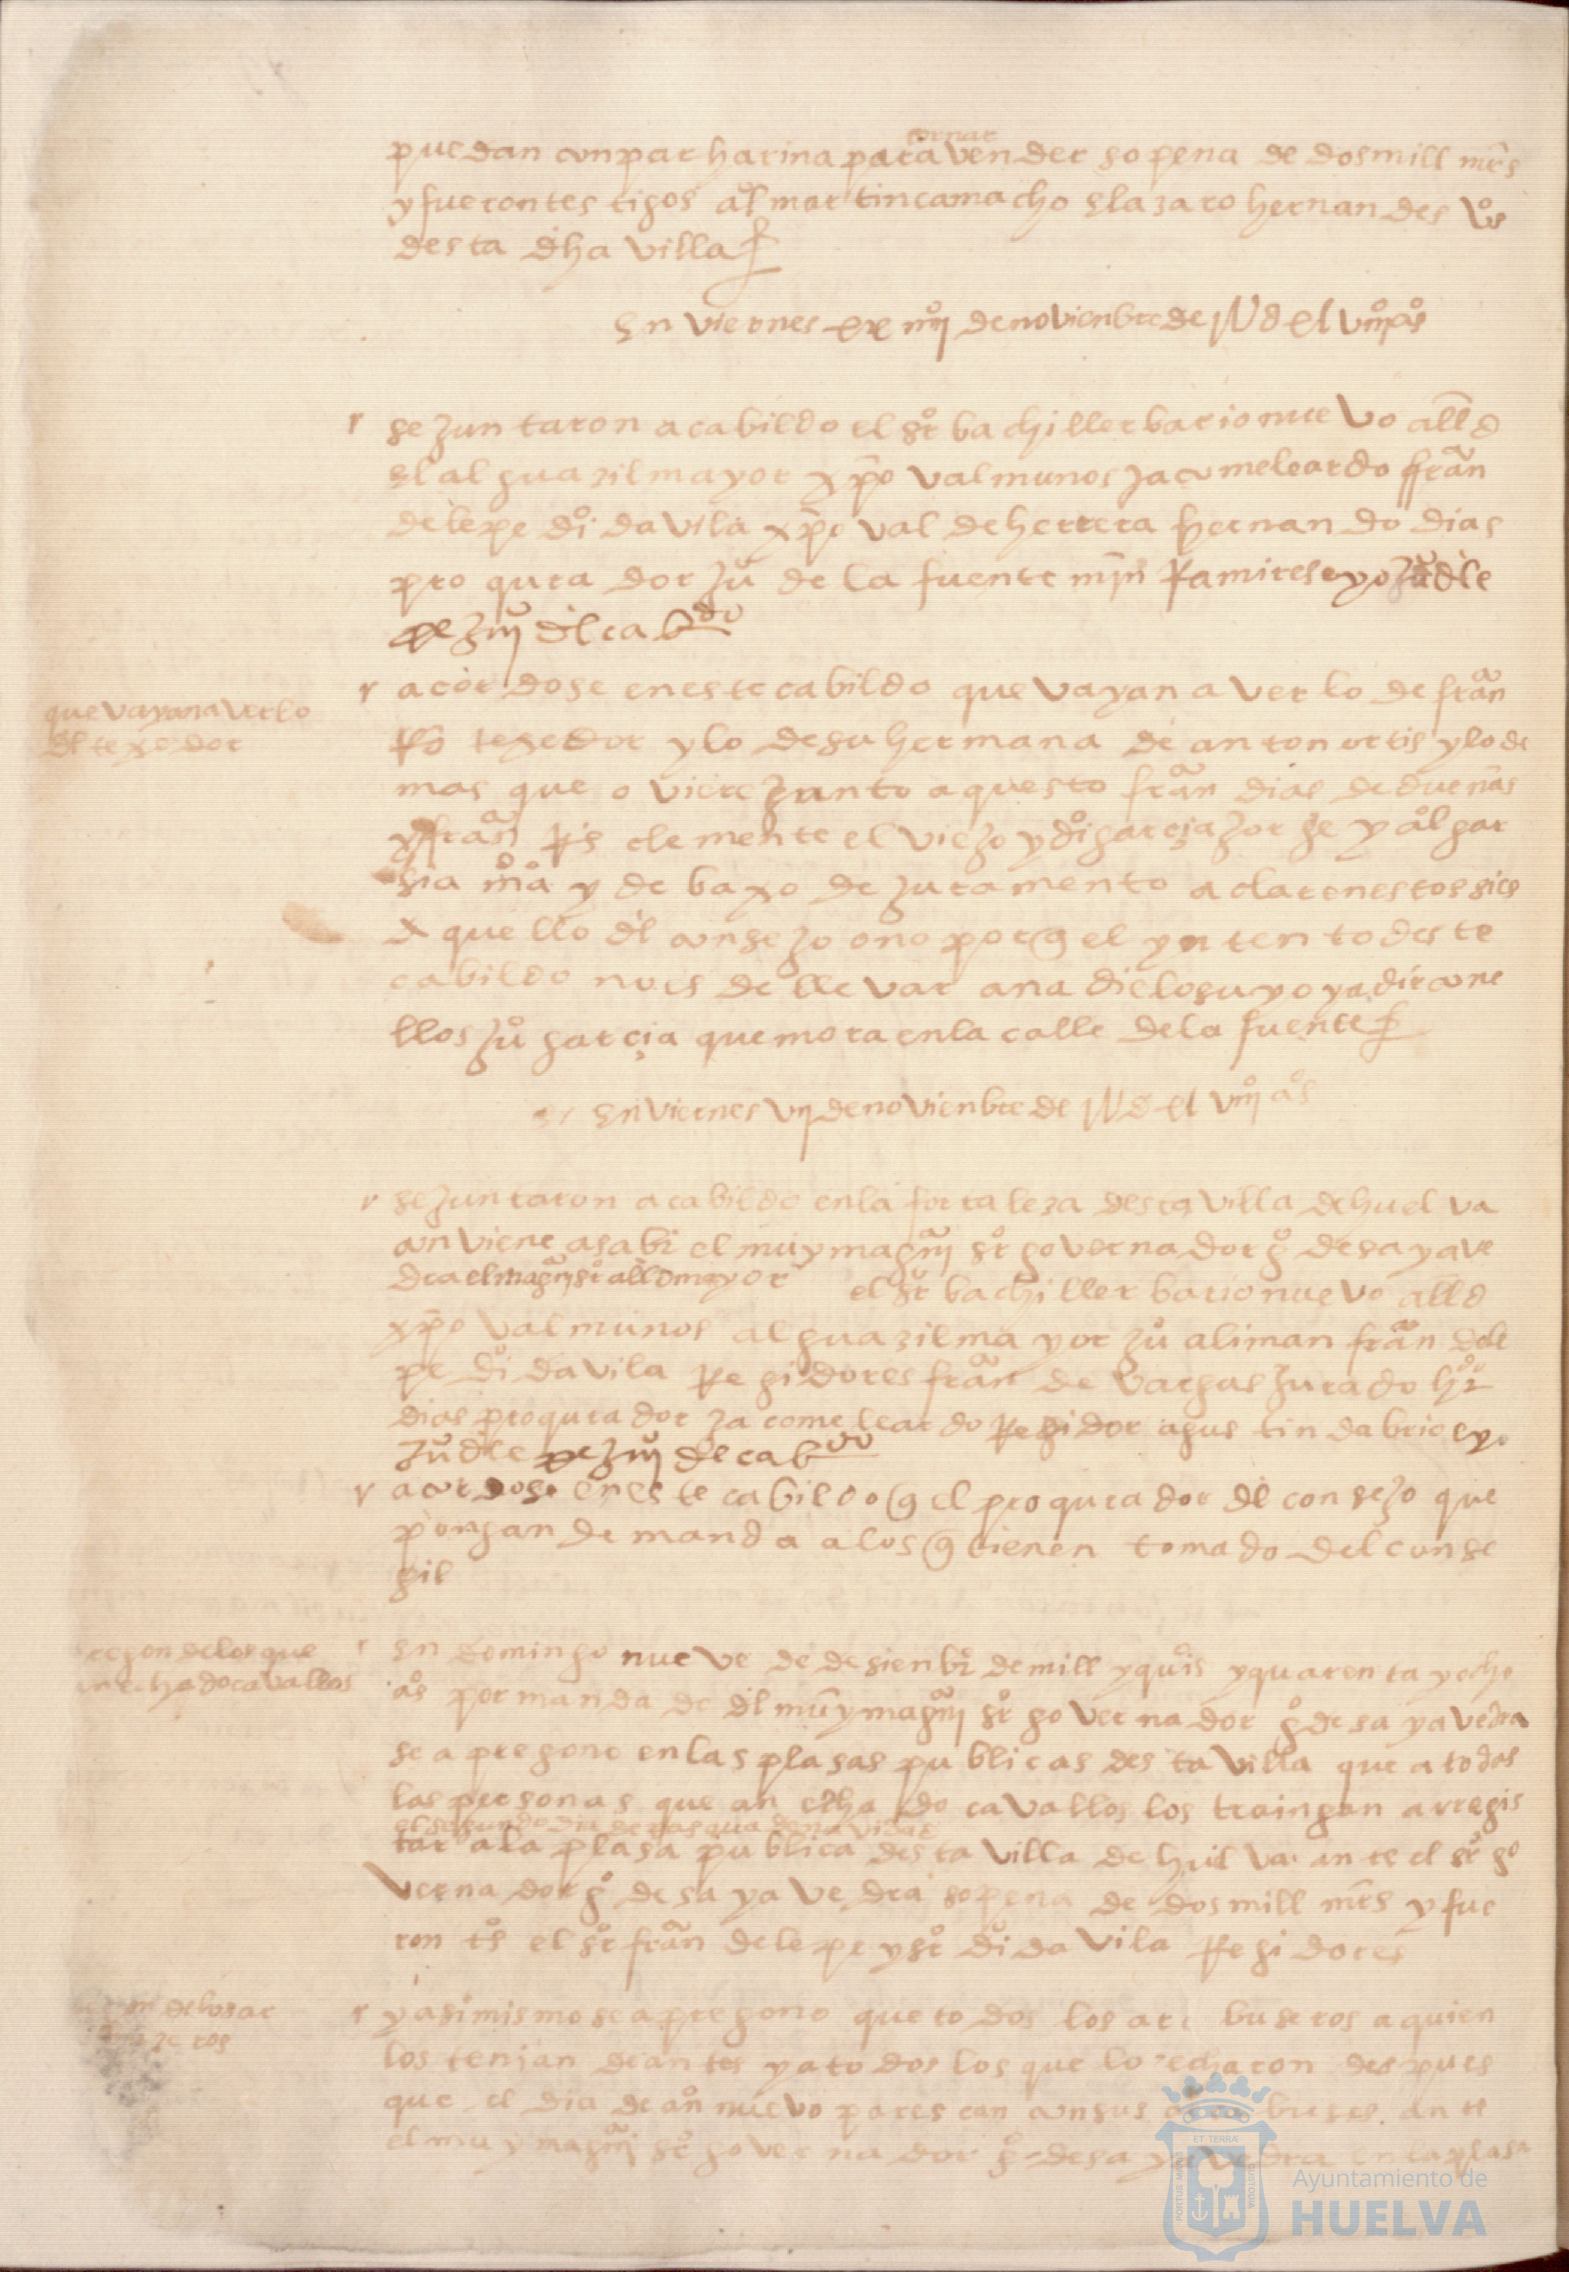 tornar
puedan conpar harina para vender so pena de dos mill mrs
y fueron testigos al° martin camacho e lazaro hernandes vos
desta dha villa
en viernes de novienbre de
se juntaron a cabildo el sr bachiller barionuevo alld
el alguazil mayor xpo val munos jacome leardo ffran
de lepe d° davila xpo val de herrera hernando dias
procurador ju° de la fuente mjn Ramires e yo ju° de le
pe del cabdo
acordose en este cabildo que vayan a ver lo de fran
que vayan a ver lo
del texedor
texedor y lo de su hermana de anton ortis y lo de
mas que oviere junto a questo fran dias de duenas
y ffran clemente el viejo y d° garçia jorge y al° gar
sia y debaxo de juramento aclaren estos si es
aquello del consejo o no por q el yntento deste
cabildo no es de llevar a nadie lo suyo y a de ir con e
llos ju° garçia que mora en la calle de la fuente
en viernes vij de novienbre de
se juntaron a cabildo en la fortaleza desta villa de huelva
conviene a sabr el muy magco sr governador g° de sayave
dra el magco sr alld mayor el sr bachiller barionuevo alld
xpo val munos alguazil mayor ju° aliman fran de le
pe d° davila Regidores fran de vargas jurado hr°
dias procurador jacome leardo Regidor agustin dabrio e yo
ju° de le pe de cabdo
acordose en este cabildo q el procurador del consejo que
pongan demanda a los q tienen tomado del conse
gil
en domingo nueve de desienbr de mill y qui°s y quarenta y ocho
pregon de los que
an echado cavallos
a°s por mandado del muy magco sr governador g° de sayavedra
se apregono en las plasas publicas desta villa que a todas
las personas que an echado cavallos los traingan a rregis
el segundo dia de pascua de navidat
trar a la plasa publica desta villa de huelva ante el sr go
vernador g° de sayavedra so pena de dos mill mrs y fue
ron ts el sr fran de lepe y sr d° davila Regidores
y asimismo se apregono que todos los arcabuseros a quien
de los ar
ros
los tenian de antes y a todos los que lo echaron despues
que el dia de an° nuevo parescan con sus arcabuses ante
el muy magco sr governador g° de sayavedra en la plasa
ET TERRÆ
PORTUS MARIS
CUSTODIA
Ayuntamiento de
HUELVA